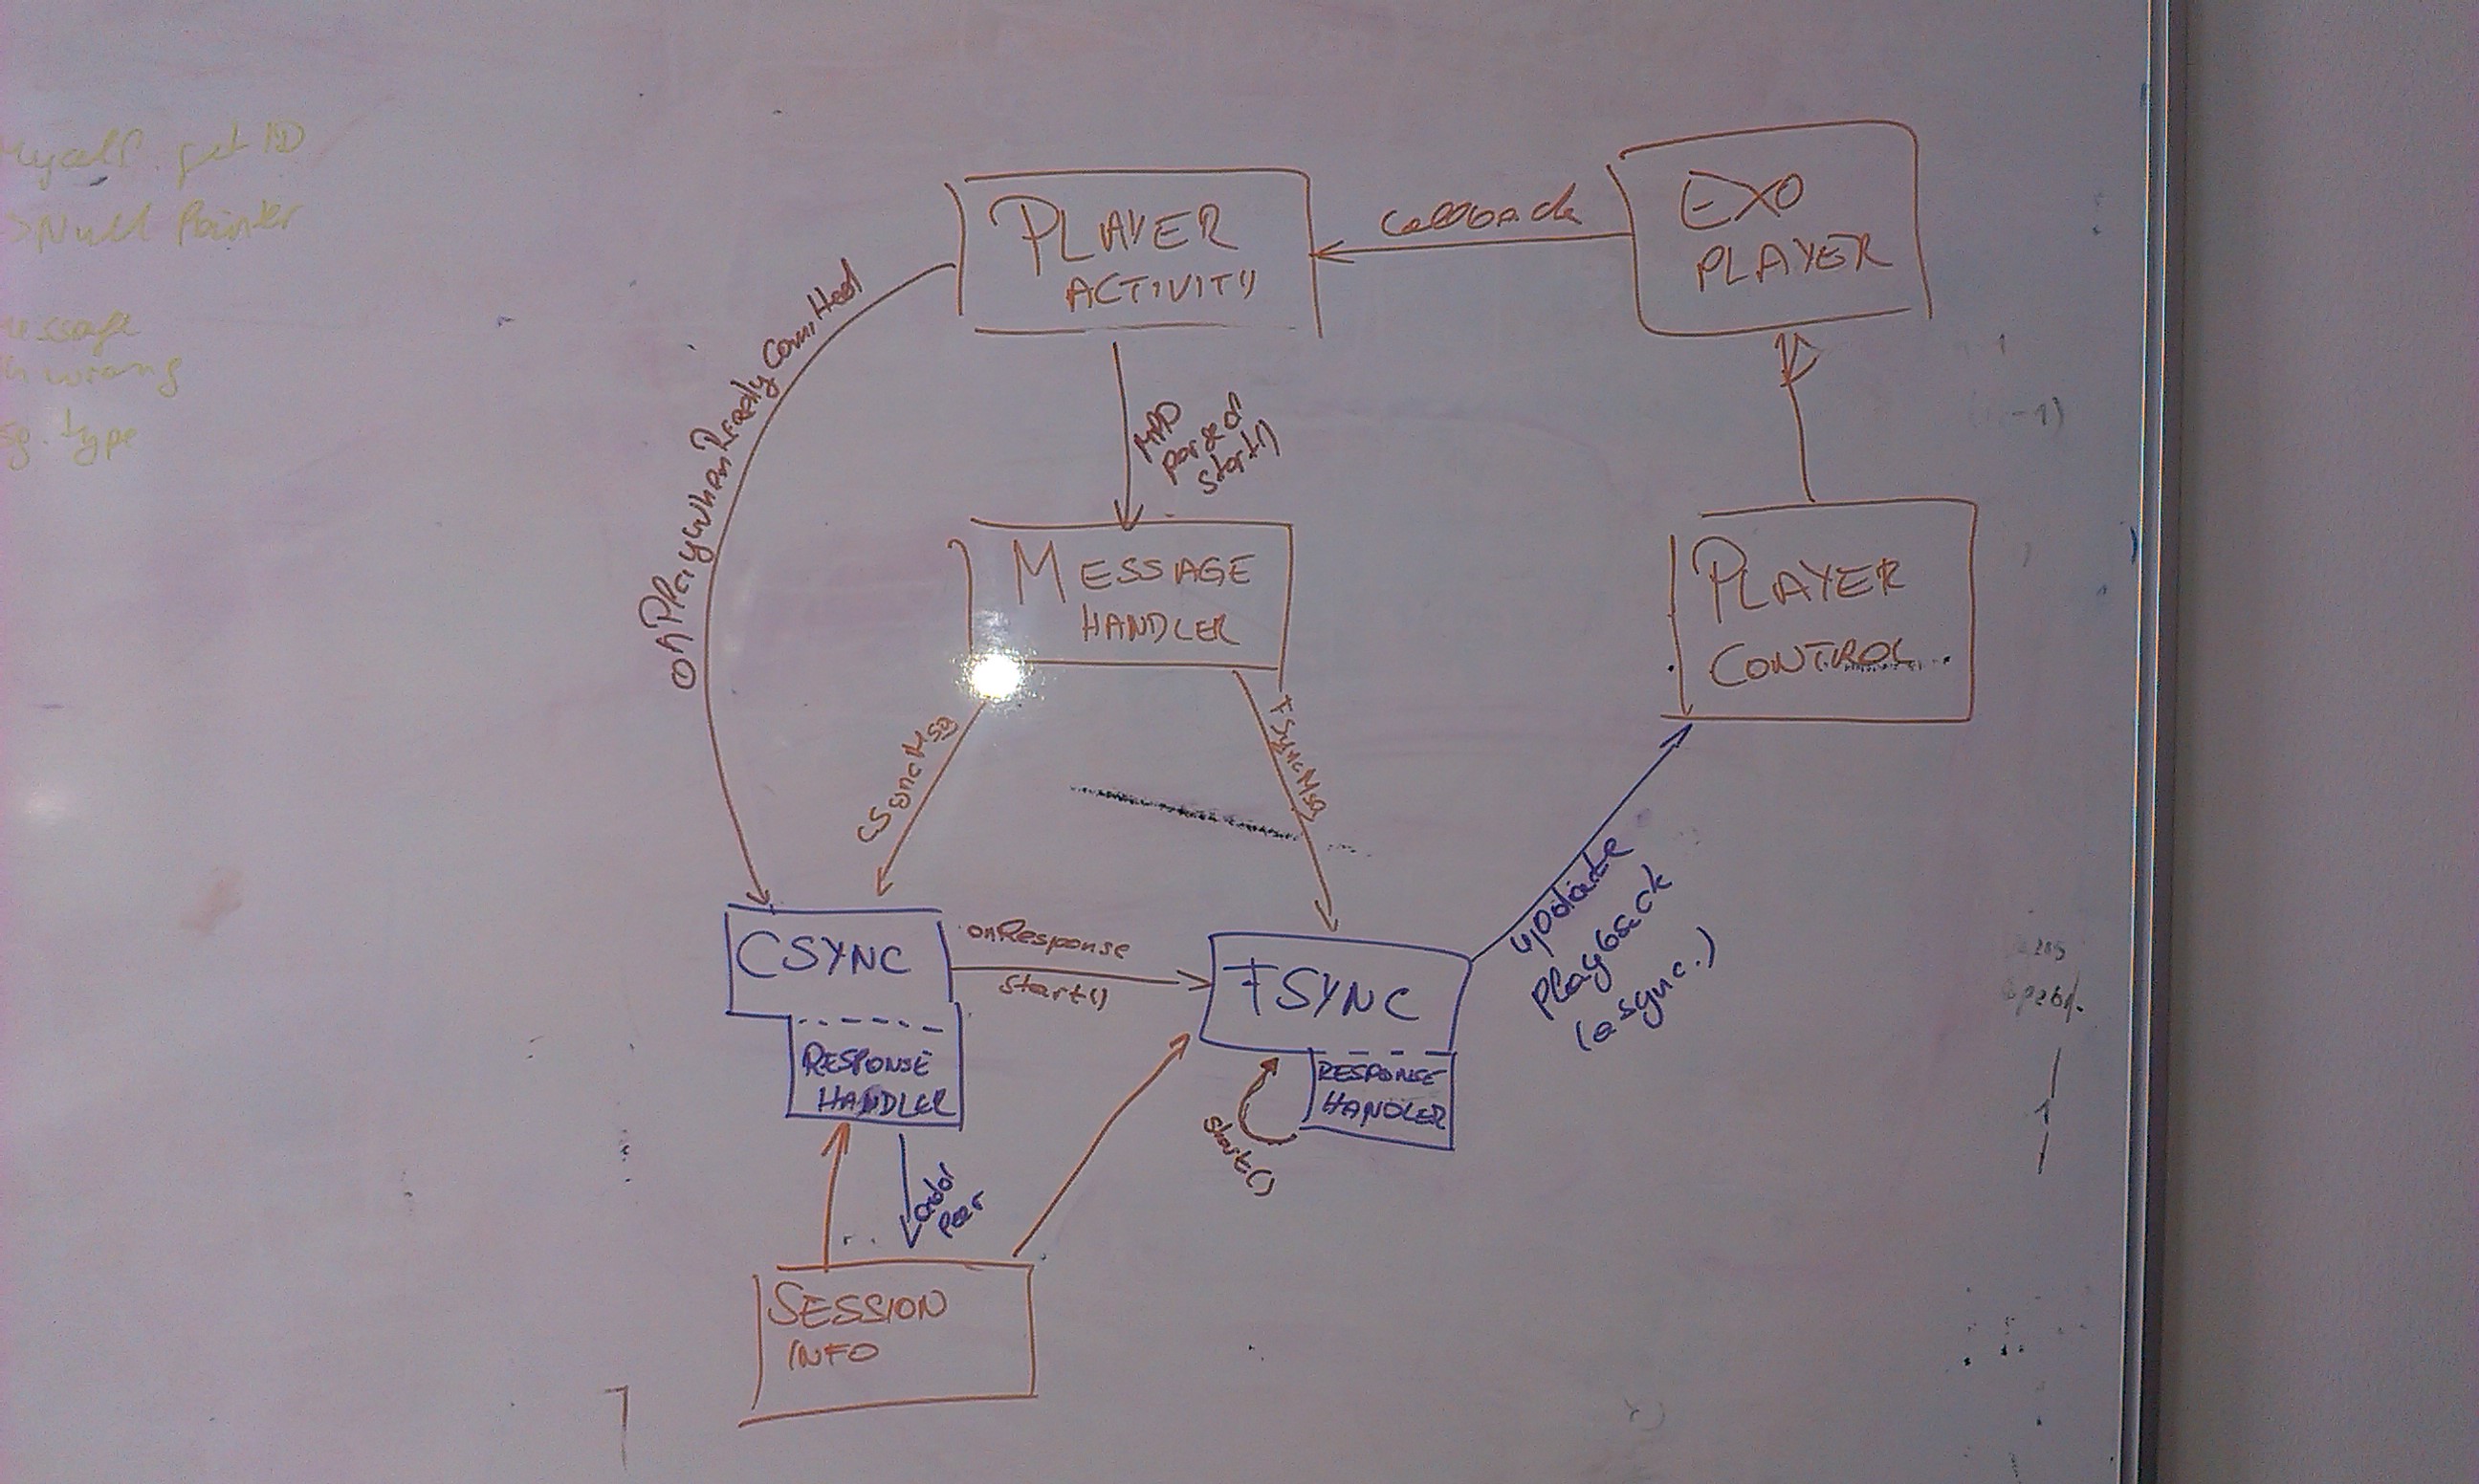 get ID
Null Pointer
wrong
type
PLAYER
ACTIVITY
callback
EXO
PLAYER
onPlayWhenReadyCommitted
parsed
start()
MESSAGE
HANDLER
PLAYER
CONTROL
CSyncMsg
FSyncMsg
CSYNC
RESPONSE
HANDLER
onResponse
start()
FSYNC
RESPONSE
HANDLER
start()
update
Playback
(async.)
add
Peer
SESSION
INFO